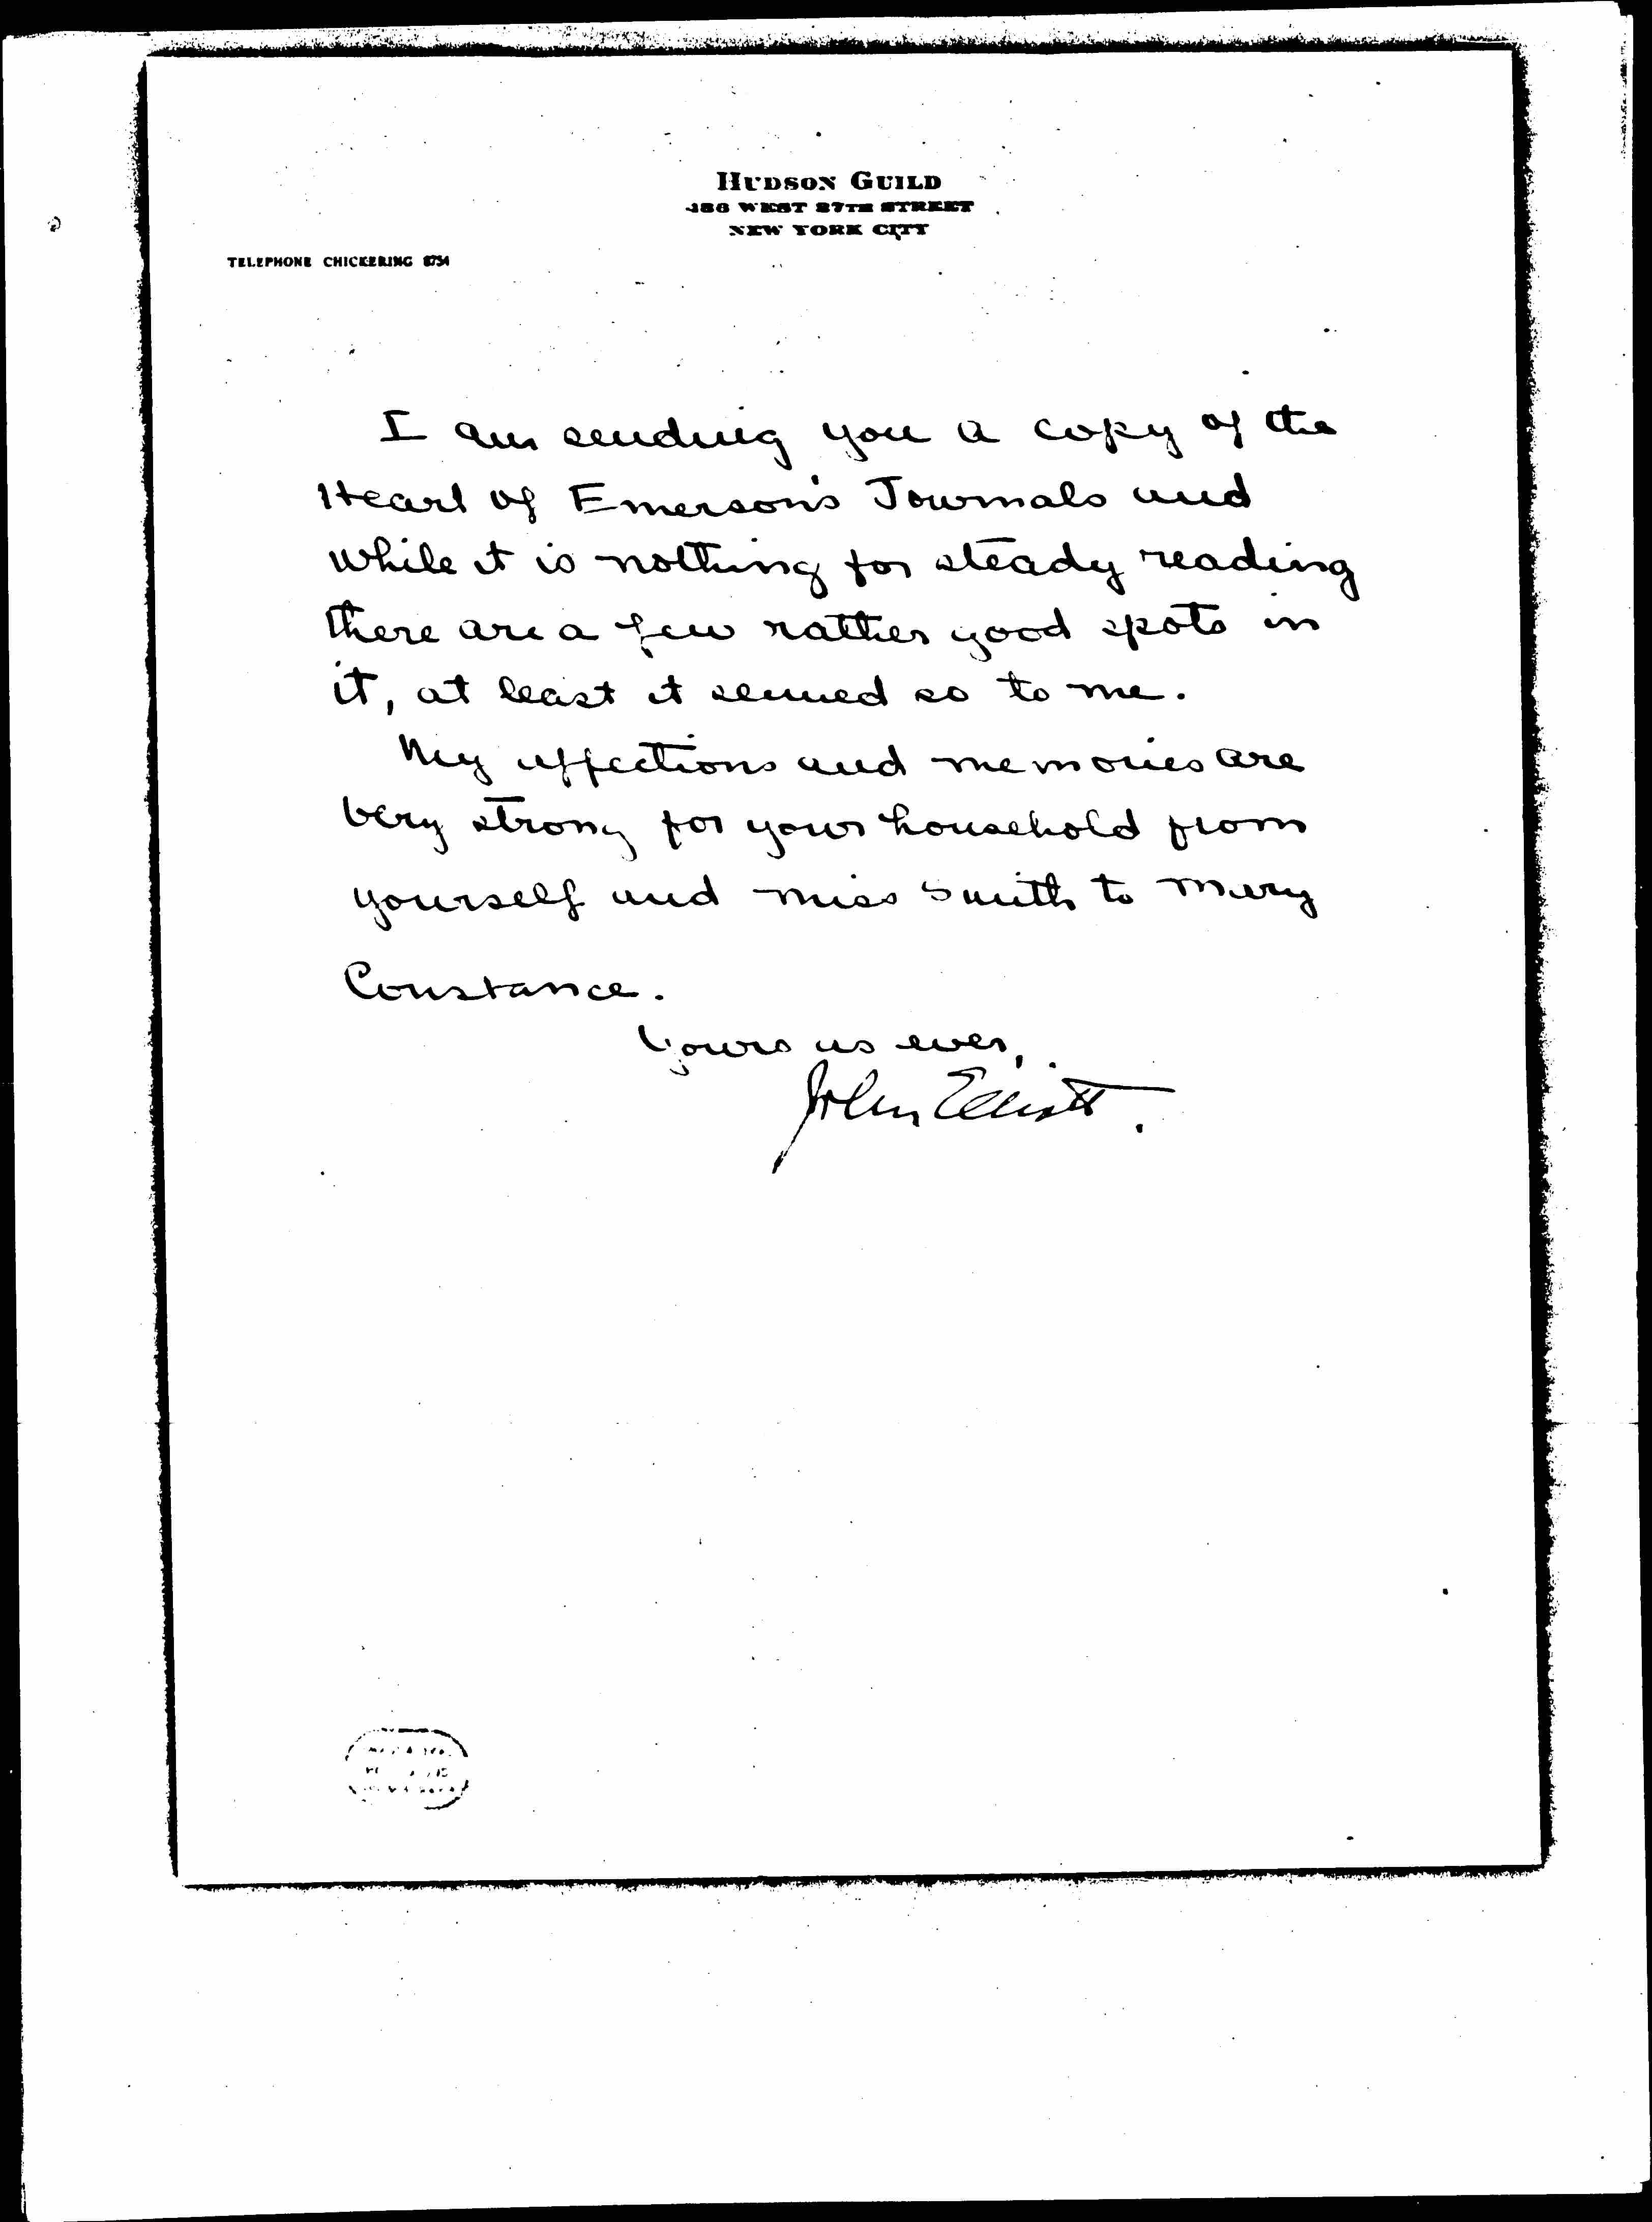 HUDSON GUILD
436 WEST 27TH STREET
NEW YORK CITY
TELEPHONE CHICKERING 8754
I am sending you a copy of the
Heart of Emerson's Journals and
while it is nothing for steady reading
there are a few rather good spots in
it, at least it seemed so to me.
My affections and memories are
very strong for your household from
yourself and Miss Smith to Mary
Constance.
Yours as ever,
John Elliott.